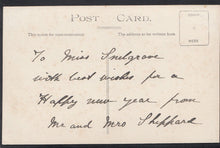 POST CARD.
To Miss Snelgrove
with best wishes for a
Happy new year from
Mr and Mrs Sheppard